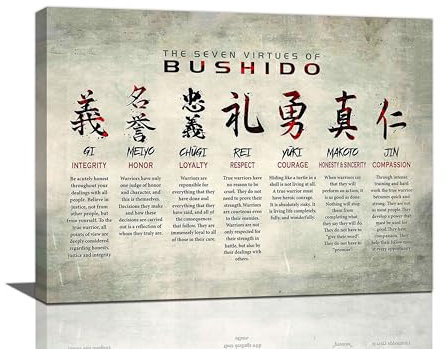 THE SEVEN VIRTUES OF
BUSHIDO
義
GI
INTEGRITY
Be acutely honest
throughout your
dealings with all
people. Believe in
justice, not from
other people, but
from yourself. To the
true warrior, all
points of view are
deeply considered
regarding honesty,
justice and integrity
名
誉
MEIYO
HONOR
Warriors have only
one judge of honor
and character, and
this is themselves.
Decisions they make
and how these
decisions are carried
out is a reflection of
whom they truly are.
忠
義
CHŪGI
LOYALTY
Warriors are
responsible for
everything that they
have done and
everything that they
have said, and all of
the consequences
that follow. They are
immensely loyal to all
of those in their care.
礼
REI
RESPECT
True warriors have
no reason to be
cruel. They do not
need to prove their
strength. Warriors
are courteous even
to their enemies.
Warriors are not
only respected for
their strength in
battle, but also by
their dealings with
others.
勇
YŪKI
COURAGE
Hiding like a turtle in a
shell is not living at all.
A true warrior must
have heroic courage.
It is absolutely risky. It
is living life completely,
fully, and wonderfully.
真
MAKOTO
HONESTY & SINCERITY
When warriors say that
they will
perform an action, it
is as good as done.
Nothing will stop
them from
completing what
they say they will do.
They do not have to
"give their word".
They do not have to
"promise"
仁
JIN
COMPASSION
Through intense
training and hard
work the true warrior
becomes quick and
strong. They are not
as most people. They
develop a power that
must be used for
good. They have
compassion. They
help their fellow men
at every opportunity.